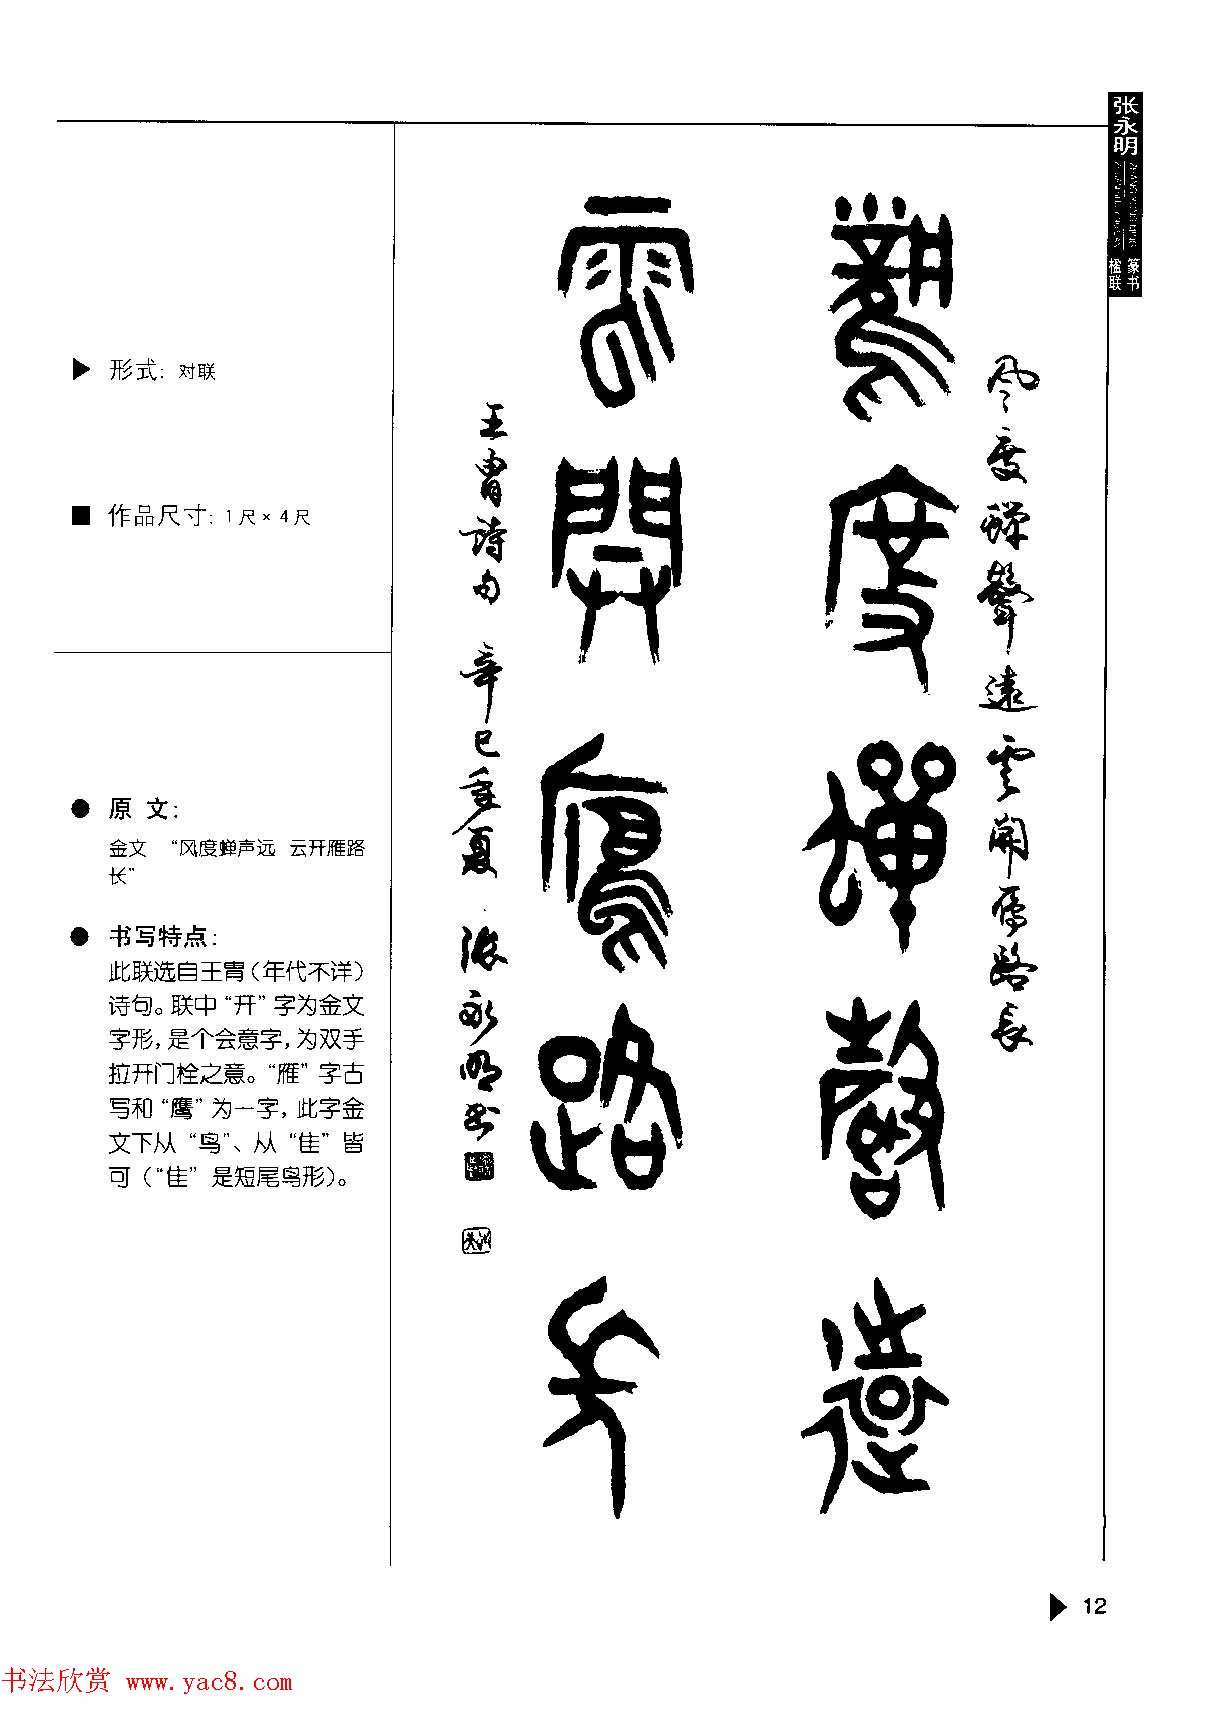 张永明
篆书
楹联
形式: 对联
作品尺寸: 1尺×4尺
原 文:
金文 “风度蝉声远 云开雁路
长”
书写特点:
此联选自王胄(年代不详)
诗句。联中“开”字为金文
字形,是个会意字,为双手
拉开门栓之意。“雁”字古
写和“鹰”为一字,此字金
文下从“鸟”、从“隹”皆
可(“隹”是短尾鸟形)。
风度蟬聲遠雲開雁路長
風度蟬聲遠
雲開雁路長
王胄詩句 辛巳重夏 张永明书
12
书法欣赏 www.yac8.com